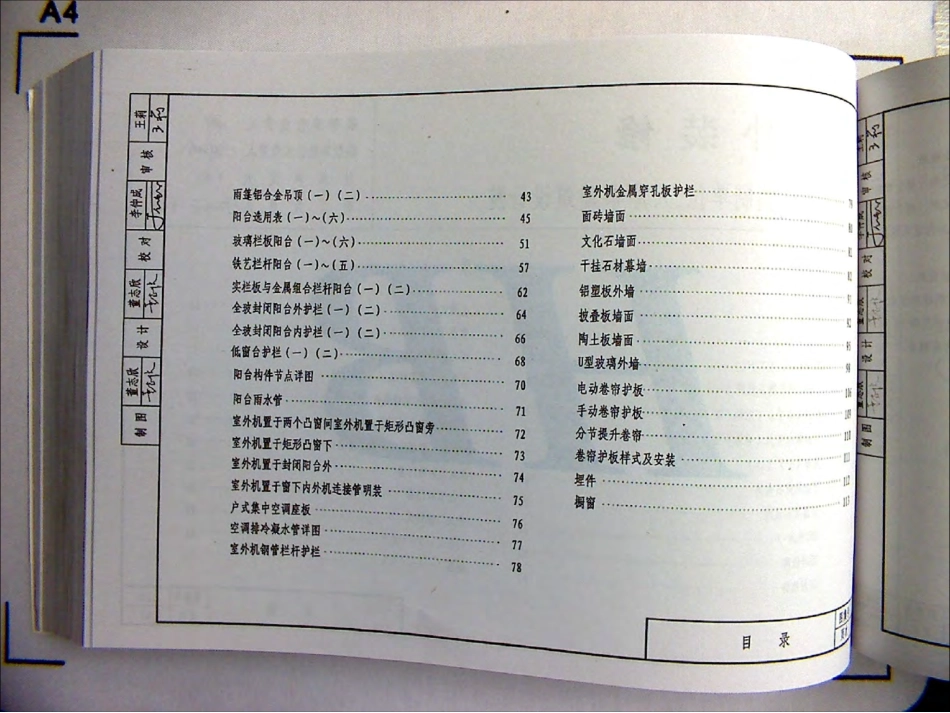 A4
雨篷铝合金吊顶(一)(二) 43
阳台选用表(一)~(六) 45
玻璃栏板阳台(一)~(六) 51
铁艺栏杆阳台(一)~(五) 57
实栏板与金属组合栏杆阳台(一)(二) 62
全玻封闭阳台外护栏(一)(二) 64
全玻封闭阳台内护栏(一)(二) 66
低窗台护栏(一)(二) 68
阳台构件节点详图 70
阳台雨水管 71
室外机置于两个凸窗间室外机置于矩形凸窗旁 72
室外机置于矩形凸窗下 73
室外机置于封闭阳台外 74
室外机置于窗下内外机连接管明装 75
户式集中空调座板 76
空调排冷凝水管详图 77
室外机钢管栏杆护栏 78
室外机金属穿孔板护栏
面砖墙面
文化石墙面
干挂石材幕墙
铝塑板外墙
披叠板墙面 92
陶土板墙面
U型玻璃外墙
电动卷帘护板
手动卷帘护板
分节提升卷帘 110
卷帘护板样式及安装 111
埋件 112
橱窗 113
王莉
审核
李仲成
校对
董志欣
设计
董志欣
制图
目录
审核
校对
设计
制图